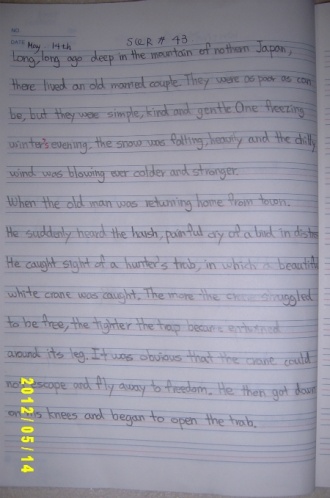 NO.
DATE May 14th SWR # 43
Long, long ago deep in the mountain of nothern Japan,
there lived an old married couple. They were as poor as can
be, but they were simple, kind and gentle One freezing
winter's evening. the snow was falling, heavily and the chilly
wind was blowing ever colder and stronger.
When the old man was returning home from town.
He suddenly heard the harsh, painful cry of a bird in distre
He caught sight of a hunter's trab, in which a beautiful
white crane was caught. The more the crane struggled
to be free, the tighter the trap became entwined
around its leg. It was obvious that the crane could
not escape and fly away to freedom. He then got down
on his knees and began to open the trab.
2012/05/14